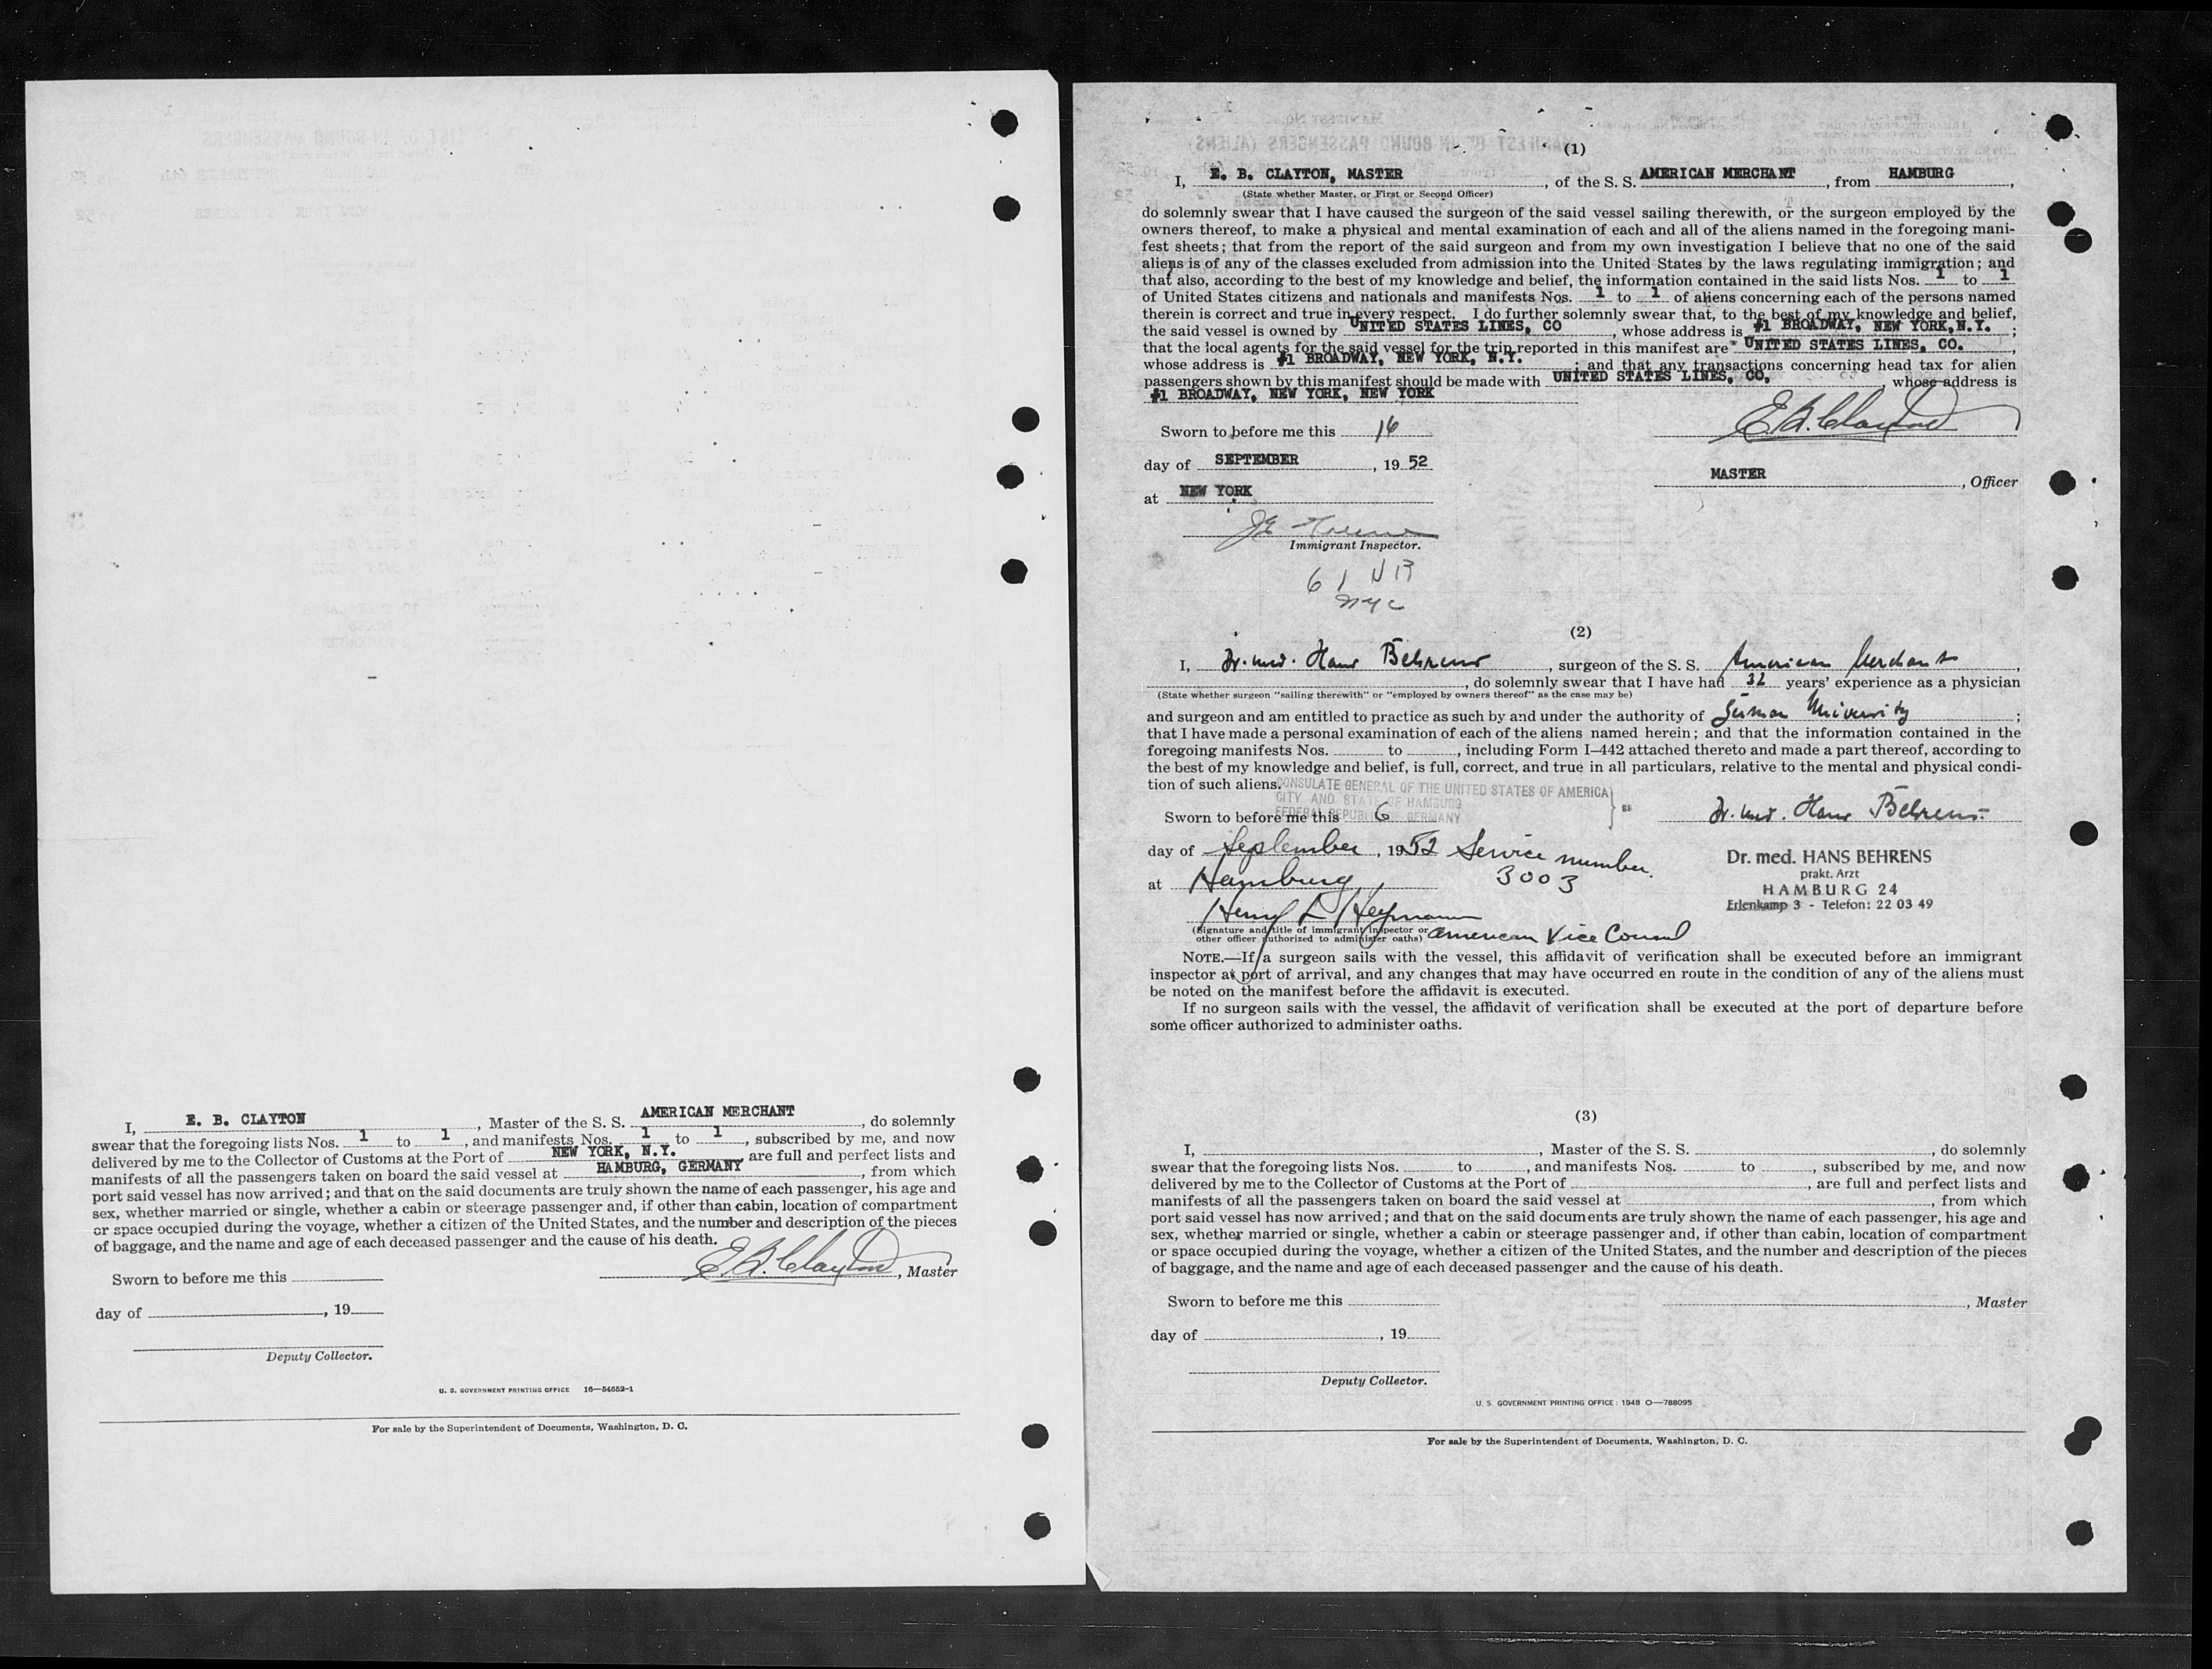 I, E. B. CLAYTON, Master of the S. S. AMERICAN MERCHANT, do solemnly
swear that the foregoing lists Nos. 1 to 1, and manifests Nos. 1 to 1, subscribed by me, and now
delivered by me to the Collector of Customs at the Port of NEW YORK, N.Y. are full and perfect lists and
manifests of all the passengers taken on board the said vessel at HAMBURG, GERMANY, from which
port said vessel has now arrived; and that on the said documents are truly shown the name of each passenger, his age and
sex, whether married or single, whether a cabin or steerage passenger and, if other than cabin, location of compartment
or space occupied during the voyage, whether a citizen of the United States, and the number and description of the pieces
of baggage, and the name and age of each deceased passenger and the cause of his death.
E. B. Clayton, Master
Sworn to before me this
day of , 19
Deputy Collector.
U. S. GOVERNMENT PRINTING OFFICE 16—54652-1
For sale by the Superintendent of Documents, Washington, D. C.
(1)
I, E. B. CLAYTON, MASTER, of the S. S. AMERICAN MERCHANT, from HAMBURG,
(State whether Master, or First or Second Officer)
do solemnly swear that I have caused the surgeon of the said vessel sailing therewith, or the surgeon employed by the
owners thereof, to make a physical and mental examination of each and all of the aliens named in the foregoing mani-
fest sheets; that from the report of the said surgeon and from my own investigation I believe that no one of the said
aliens is of any of the classes excluded from admission into the United States by the laws regulating immigration; and
that also, according to the best of my knowledge and belief, the information contained in the said lists Nos. 1 to 1
of United States citizens and nationals and manifests Nos. 1 to 1 of aliens concerning each of the persons named
therein is correct and true in every respect. I do further solemnly swear that, to the best of my knowledge and belief,
the said vessel is owned by UNITED STATES LINES, CO, whose address is #1 BROADWAY, NEW YORK, N.Y. ;
that the local agents for the said vessel for the trip reported in this manifest are UNITED STATES LINES, CO. ,
whose address is #1 BROADWAY, NEW YORK, N.Y. ; and that any transactions concerning head tax for alien
passengers shown by this manifest should be made with UNITED STATES LINES, CO, , whose address is
#1 BROADWAY, NEW YORK, NEW YORK
Sworn to before me this 16
E. B. Clayton
day of SEPTEMBER, 19 52
MASTER, Officer
at NEW YORK
Immigrant Inspector.
NYC
(2)
I, Dr. med. Hans Behrens, surgeon of the S. S. American Merchant,
, do solemnly swear that I have had 32 years' experience as a physician
(State whether surgeon "sailing therewith" or "employed by owners thereof" as the case may be)
and surgeon and am entitled to practice as such by and under the authority of German University ;
that I have made a personal examination of each of the aliens named herein; and that the information contained in the
foregoing manifests Nos. to , including Form I–442 attached thereto and made a part thereof, according to
the best of my knowledge and belief, is full, correct, and true in all particulars, relative to the mental and physical condi-
tion of such aliens.
CONSULATE GENERAL OF THE UNITED STATES OF AMERICA
CITY AND STATE OF HAMBURG
FEDERAL REPUBLIC OF GERMANY
} SS
Sworn to before me this 6
Dr. med. Hans Behrens.
day of September, 1952 Service number
3003
at Hamburg
Dr. med. HANS BEHRENS
prakt. Arzt
HAMBURG 24
Erlenkamp 3 - Telefon: 22 03 49
Henry L Heymann
(Signature and title of immigrant inspector or
other officer authorized to administer oaths) American Vice Consul
NOTE.—If a surgeon sails with the vessel, this affidavit of verification shall be executed before an immigrant
inspector at port of arrival, and any changes that may have occurred en route in the condition of any of the aliens must
be noted on the manifest before the affidavit is executed.
If no surgeon sails with the vessel, the affidavit of verification shall be executed at the port of departure before
some officer authorized to administer oaths.
(3)
I, , Master of the S. S. , do solemnly
swear that the foregoing lists Nos. to , and manifests Nos. to , subscribed by me, and now
delivered by me to the Collector of Customs at the Port of , are full and perfect lists and
manifests of all the passengers taken on board the said vessel at , from which
port said vessel has now arrived; and that on the said documents are truly shown the name of each passenger, his age and
sex, whether married or single, whether a cabin or steerage passenger and, if other than cabin, location of compartment
or space occupied during the voyage, whether a citizen of the United States, and the number and description of the pieces
of baggage, and the name and age of each deceased passenger and the cause of his death.
Sworn to before me this
, Master
day of , 19
Deputy Collector.
U. S. GOVERNMENT PRINTING OFFICE: 1948 O—788095
For sale by the Superintendent of Documents, Washington, D. C.